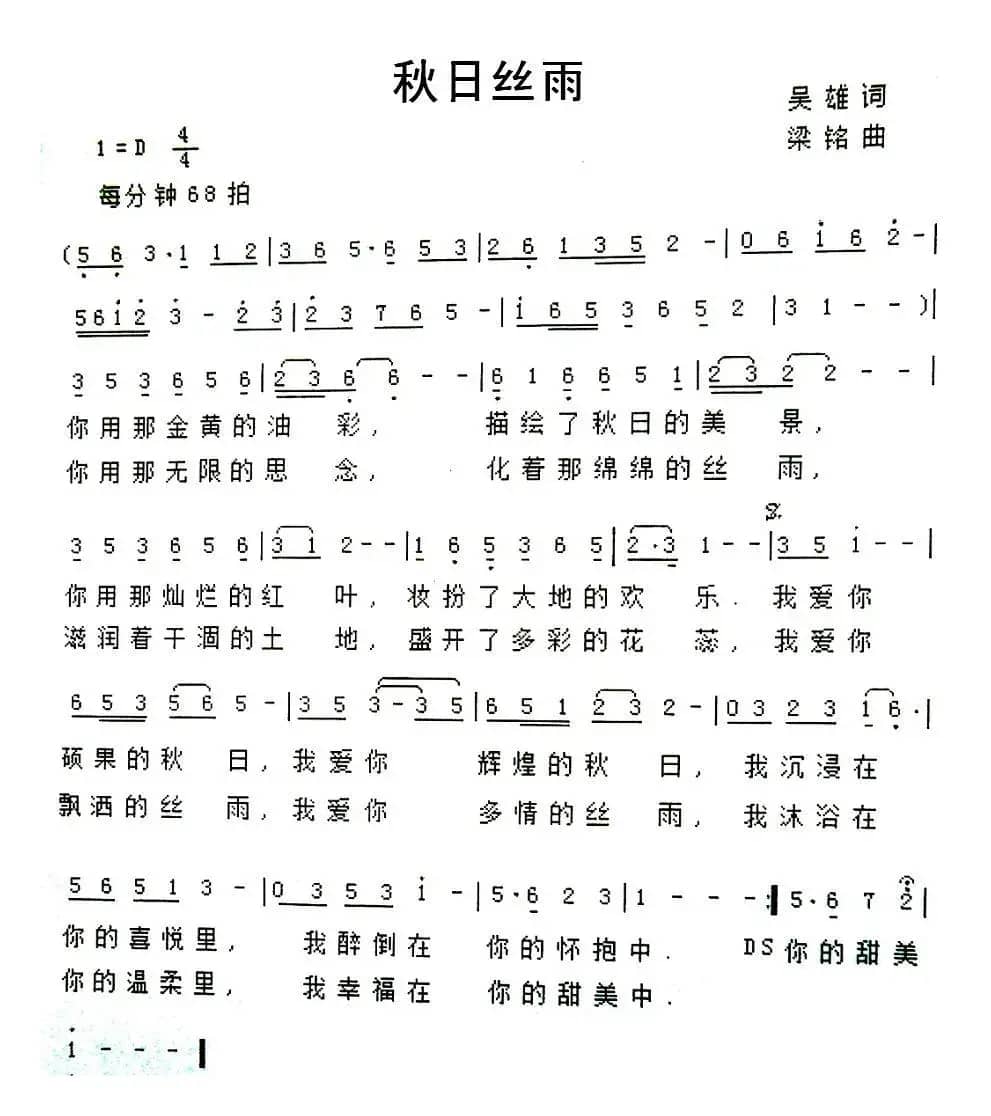 秋日丝雨
吴雄词
梁铭曲
1=D 4/4
每分钟68拍
(5 6 3·1 1 2|3 6 5·6 5 3|2 6 1 3 5 2 -|0 6 1 6 2 -|
5 6 1 2 3 - 2 3|2 3 7 6 5 -|1 6 5 3 6 5 2|3 1 - -)|
3 5 3 6 5 6|2 3 6 6 - -|6 1 6 6 5 1|2 3 2 2 - -|
你用那金黄的油彩,描绘了秋日的美景,
你用那无限的思念,化着那绵绵的丝雨,
3 5 3 6 5 6|3 1 2 - -|1 6 5 3 6 5|2·3 1 - -|3 5 1 - -|
你用那灿烂的红叶,妆扮了大地的欢乐.我爱你
滋润着干涸的土地,盛开了多彩的花蕊,我爱你
6 5 3 5 6 5 -|3 5 3 - 3 5|6 5 1 2 3 2 -|0 3 2 3 1 6·|
硕果的秋日,我爱你辉煌的秋日,我沉浸在
飘洒的丝雨,我爱你多情的丝雨,我沐浴在
5 6 5 1 3 -|0 3 5 3 1 -|5·6 2 3|1 - - -:|5·6 7 2|
你的喜悦里,我醉倒在你的怀抱中.DS你的甜美
你的温柔里,我幸福在你的甜美中.
1 - - -|